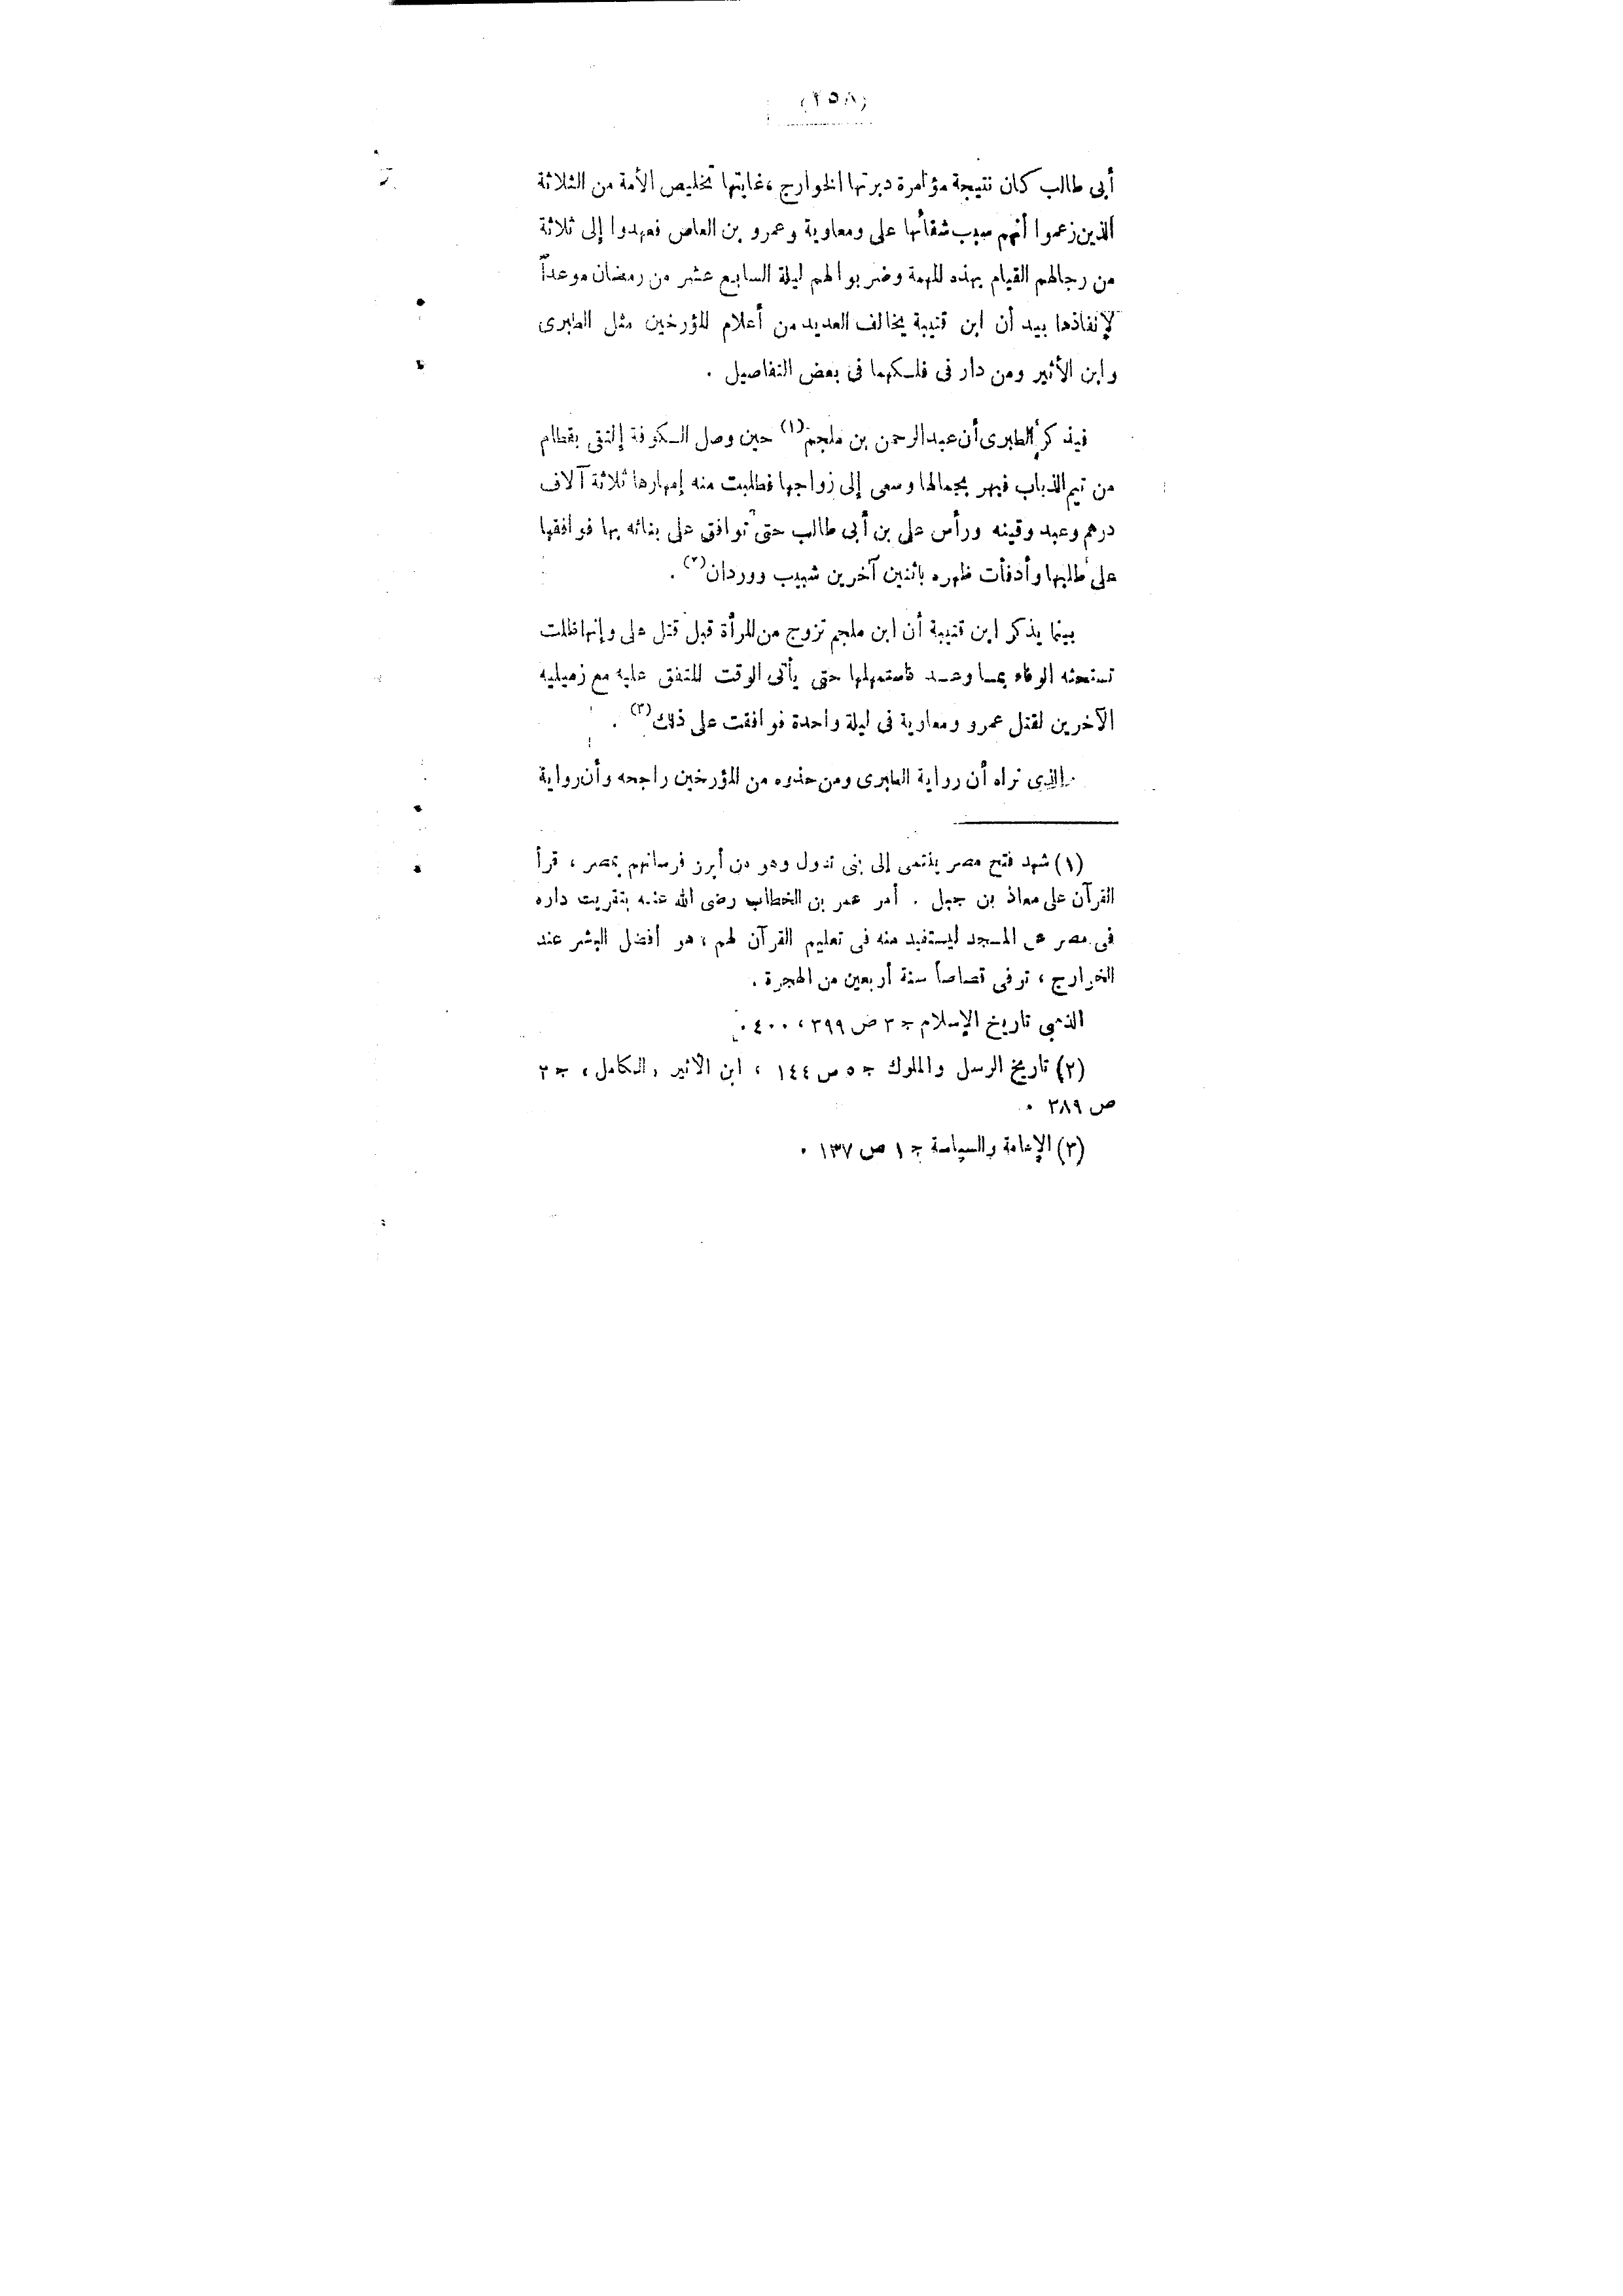 (٢٥٨)
أبى طالب كان نتيجة مؤامرة دبرتها الخوارج ، غايتها تخليص الأمة من الثلاثة
الذين زعموا أنهم سبب شقائها على ومعاوية وعمرو بن العاص فعهدوا إلى ثلاثة
من رجالهم القيام بهذه المهمة وضربوا لهم ليلة السابع عشر من رمضان موعداً
لإنفاذها بيد أن ابن قتيبة يخالف العديد من أعلام المؤرخين مثل الطبرى
وابن الأثير ومن دار فى فلكهما فى بعض التفاصيل .
فيذكر الطبرى أن عبد الرحمن بن ملجم(١) حين وصل الكوفة إلتقى بقطام
من تيم الذباب فبهر بجمالها وسعى إلى زواجها فطلبت منه إمهارها ثلاثة آلاف
درهم وعبد وقينه ورأس على بن أبى طالب حتى توافق على بنائه بها فوافقها
على طلبها وأدفأت ظهره باثنين آخرين شبيب ووردان(٢) .
بينما يذكر ابن قتيبة أن ابن ملجم تزوج من المرأة قبل قتل على وإنها ظلت
تستحثه الوفاء بما وعد فاستمهلها حتى يأتى الوقت المتفق عليه مع زميليه
الآخرين لقتل عمرو ومعاوية فى ليلة واحدة فوافقت على ذلك(٣) .
والذى نراه أن رواية الطبرى ومن حذوه من المؤرخين راجحه وأن رواية
(١) شهد فتح مصر ينتمى إلى بنى تدول وهو من أبرز فرسانهم بمصر ، قرأ
القرآن على معاذ بن جبل . أمر عمر بن الخطاب رضى الله عنه بتقريت داره
فى مصر من المسجد ليستفيد منه فى تعليم القرآن لهم ، هو أفضل البشر عند
الخوارج ، توفى قصاصاً سنة أربعين من الهجرة .
الذهبى تاريخ الإسلام ج ٣ ص ٣٩٩ ، ٤٠٠ .
(٢) تاريخ الرسل والملوك ج ٥ ص ١٤٤ ، ابن الأثير ، الكامل ، ج ٣
ص ٣٨٩ .
(٣) الإمامة والسياسة ج ١ ص ١٣٧ .